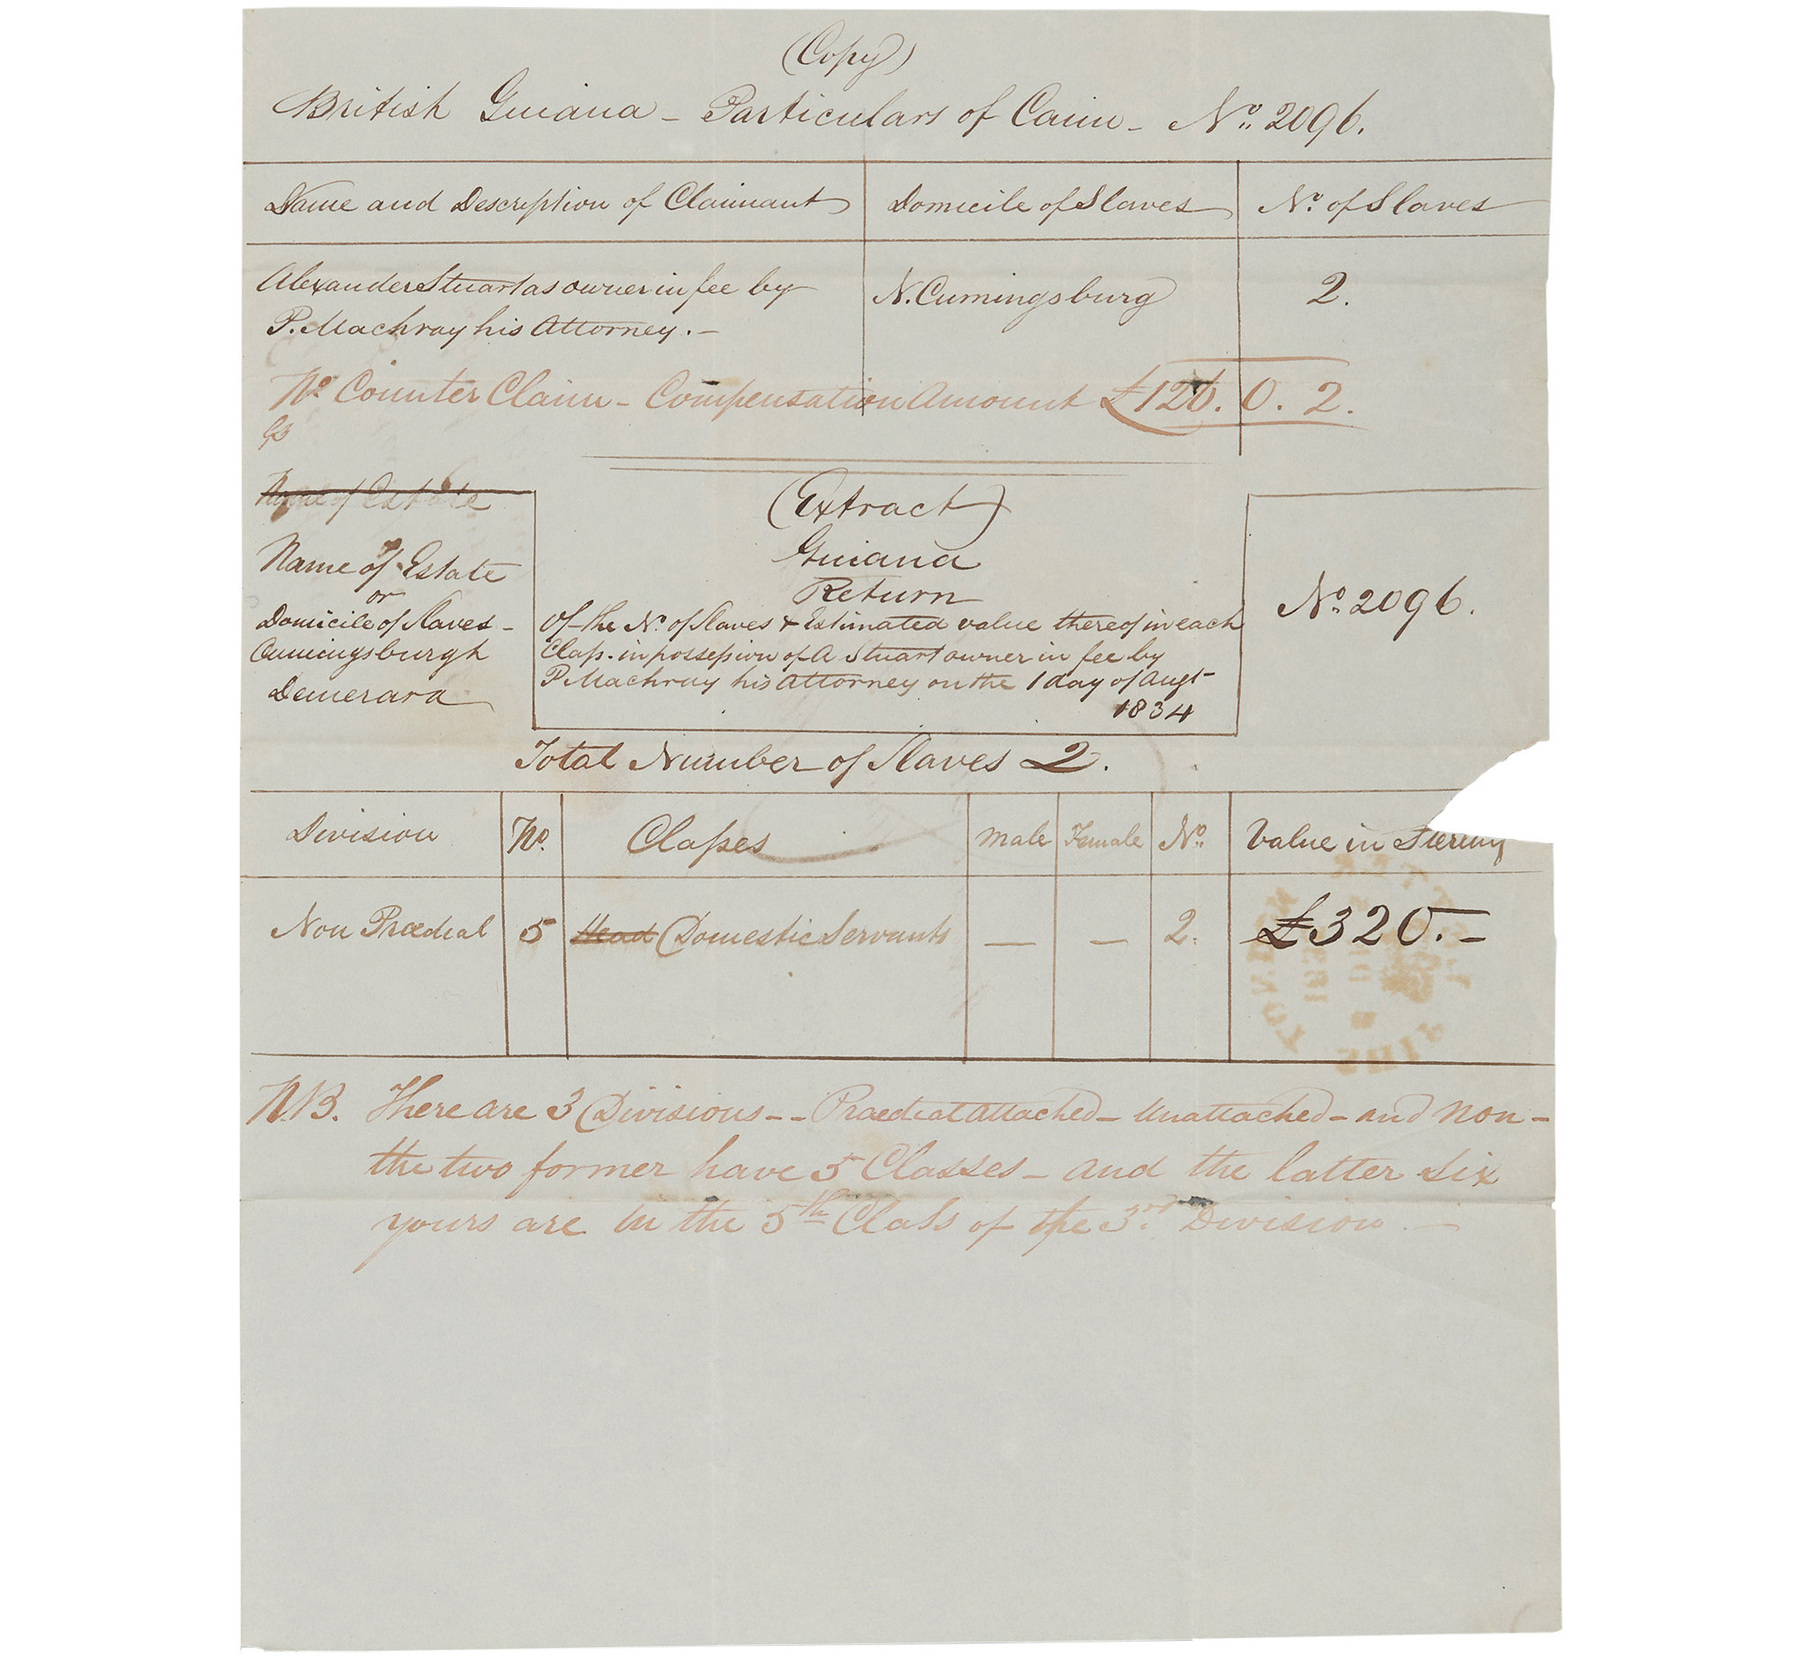 (Copy)
British Guiana - Particulars of Caim - No. 2096.
Name and Description of Claimant
Domicile of Slaves
No. of Slaves
Alexander Stuart as owner in fee by
P. Machray his Attorney. -
N. Cumingsburg
2.
No Counter Claim - Compensation Amount £126. 0. 2.
Name of Estate
Name of Estate
or
Domicile of Slaves -
Cumingsburgh
Demerara
(Extract)
Guiana
Return
Of the No. of Slaves & Estimated value thereof in each
Class. in possession of A Stuart owner in fee by
P. Machray his Attorney on the 1 day of Augt
1834
No. 2096.
Total Number of Slaves 2.
Division
No.
Classes
Male
Female
No.
Value in Sterling
Non Prædial
5
Head Domestic Servants
—
—
2.
£320. -
N.B. There are 3 Divisions - - Praedial attached - Unattached - and Non -
the two former have 5 Classes - and the latter six
yours are in the 5th Class of the 3rd Division -